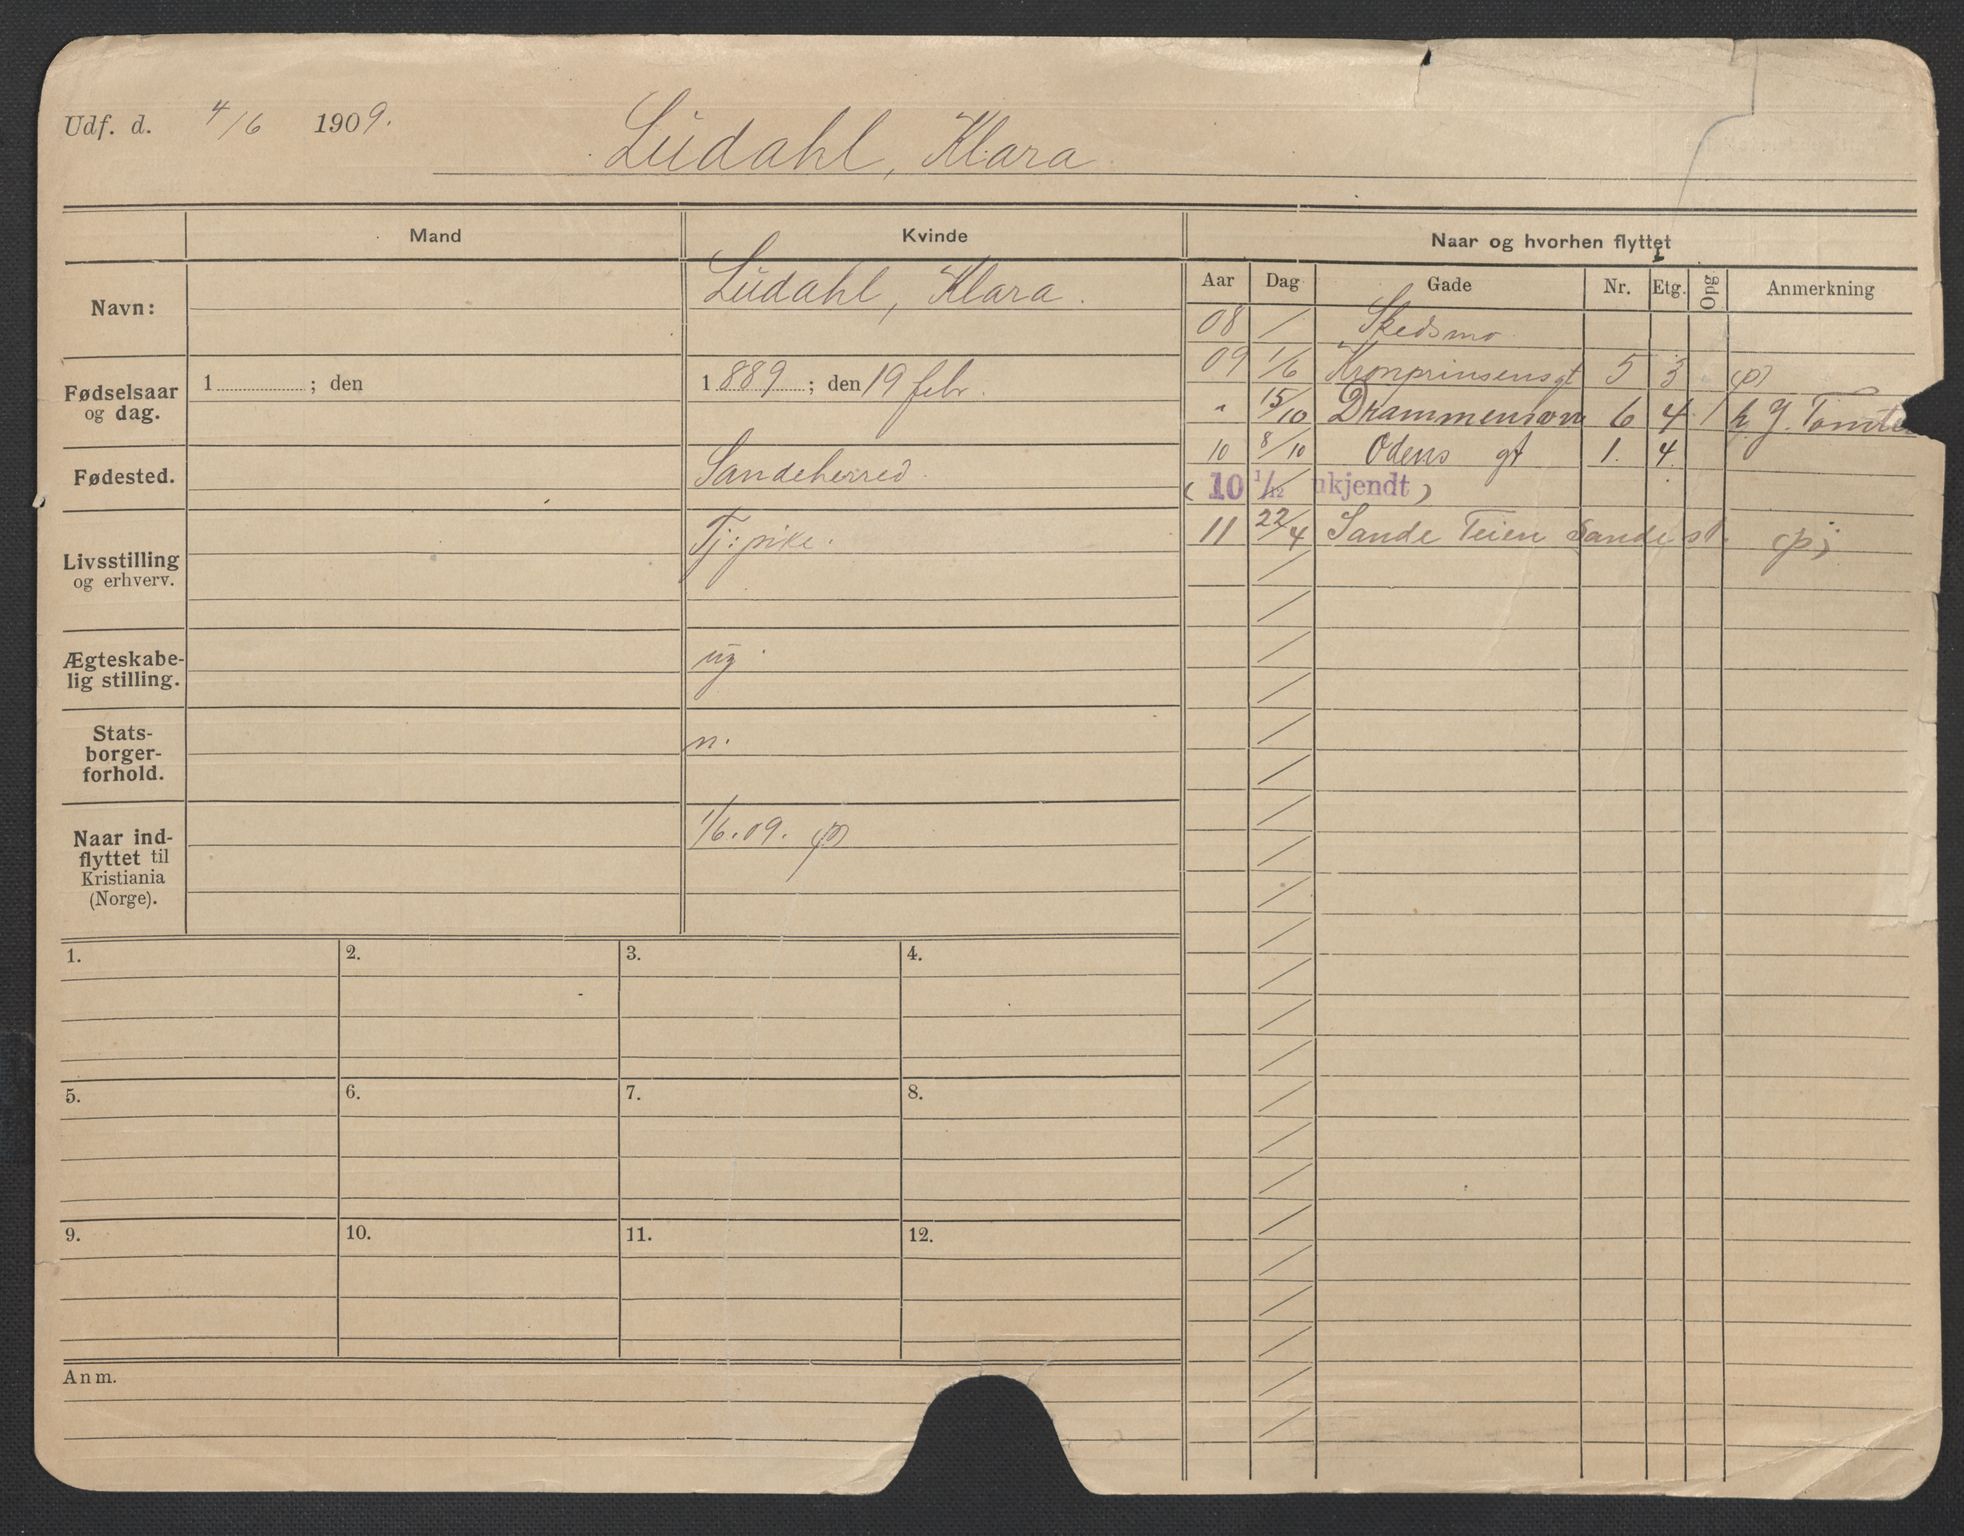 Udf. d. 4/6 1909.
Lüdahl, Klara
Mand Kvinde Naar og hvorhen flyttet
Aar Dag Gade Nr. Etg. Opg Anmerkning
Navn: Lüdahl, Klara.
Fødselsaar og dag. 1 ; den 1889 ; den 19 febr.
Fødested. Sandeherred.
Livsstilling og erhverv. Tj: pike.
Ægteskabelig stilling. ug.
Statsborgerforhold. n.
Naar indflyttet til Kristiania (Norge). 1/6.09. (p)
08 / Skedsmo
09 1/6 Kronprinsensgt 5 3 (p)
" 15/10 Drammensvn 6 4 1 h. J. Tomte
10 8/10 Odens gt 1. 4.
(10 1/12 ukjendt)
11 22/4 Sande Teien Sande st. (p)
1. 2. 3. 4.
5. 6. 7. 8.
9. 10. 11. 12.
Anm.